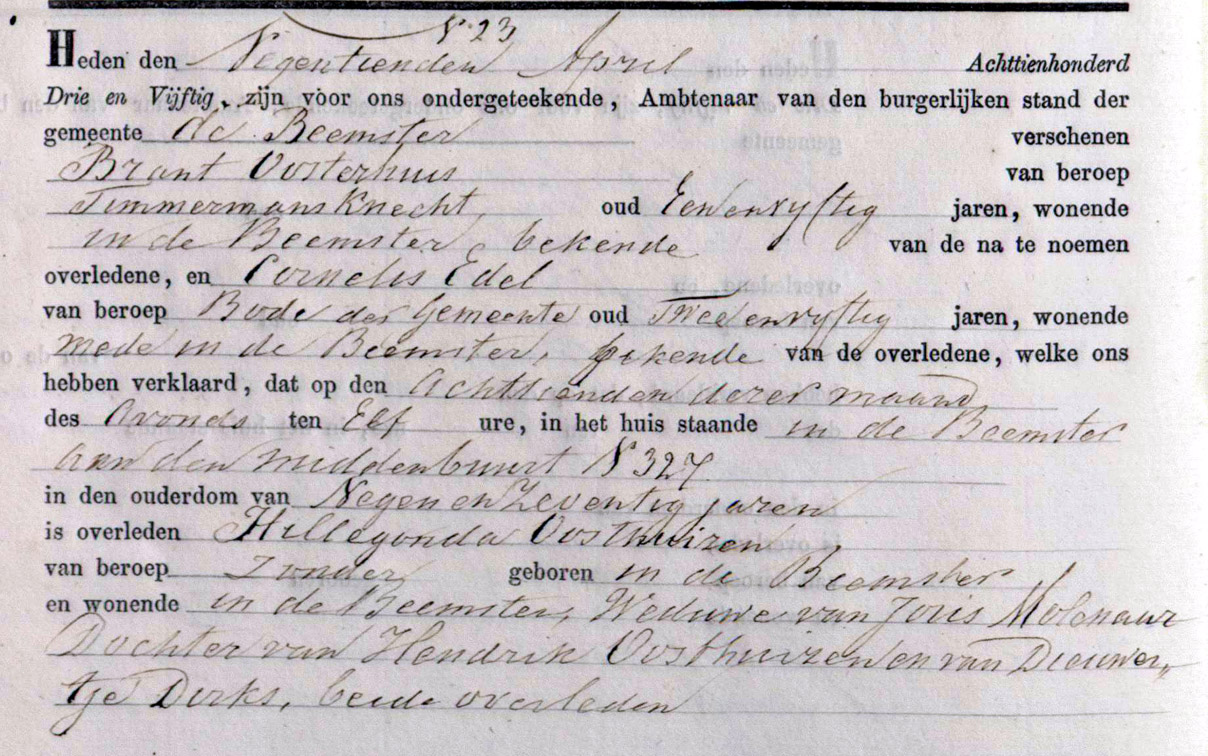 N. 23
Heden den Negentienden April Achttienhonderd
Drie en Vijftig, zijn voor ons ondergeteekende, Ambtenaar van den burgerlijken stand der
gemeente de Beemster verschenen
Brant Oosterhuis van beroep
Timmermans Knecht, oud Eenenvyftig jaren, wonende
in de Beemster, bekende van de na te noemen
overledene, en Cornelis Edel
van beroep Bode der Gemeente oud Tweeenvyftig jaren, wonende
mede in de Beemster, bekende van de overledene, welke ons
hebben verklaard, dat op den achttienden dezer maand
des avonds ten Elf ure, in het huis staande in de Beemster
aan den middenbuurt N 327
in den ouderdom van Negen en Zeventig jaren
is overleden Hillegonda Oosthuizen
van beroep Zonder, geboren in de Beemster
en wonende in de Beemster, Weduwe van Joris Molenaar
Dochter van Hendrik Oosthuizen en van Dieuwer„
tje Dirks, beide overleden